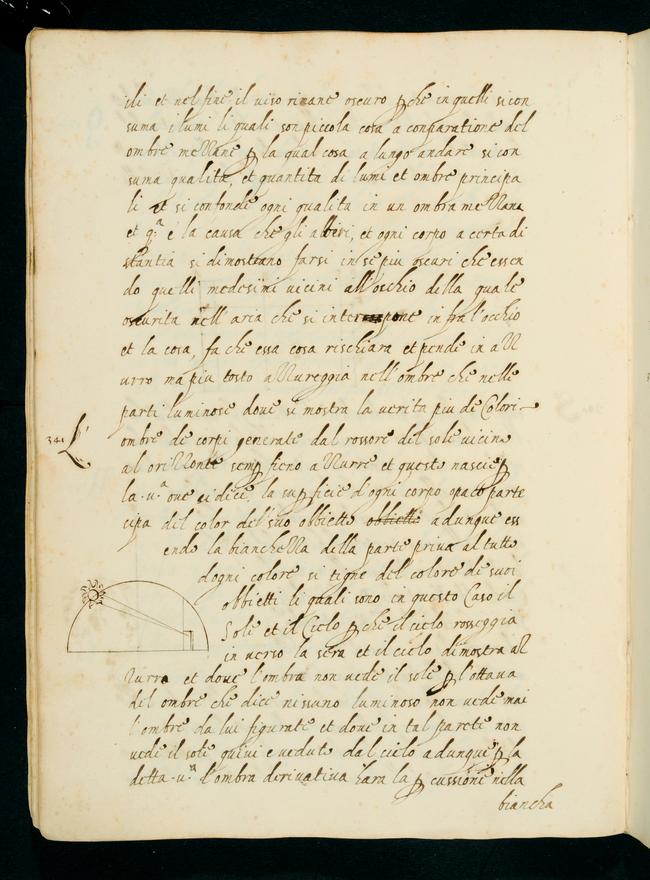 ili et nel fine il viso rimane oscuro p che in quelli si con
suma i lumi li quali son piccola cosa a conparatione del
ombre mezzane p la qual cosa a lungo andare si con
suma qualita, et quantita di lumi et ombre principa
li et si confonde ogni qualita in un ombra mezzana
et q.a e la causa che gli alberi, et ogni corpo a certa di
stantia si dimostrano farsi in se piu oscuri che essen
do quelli medesimi vicini all'occhio della quale
oscurita nell aria che si interpone infra l'occhio
et la cosa, fa che essa cosa rischiara et pende in az
urro ma piu tosto azzureggia nell'ombre che nelle
parti luminose dove si mostra la verita piu de Colori
341
ombre de corpi generate dal rossore del sole vicino
al orizzonte semp fieno azzurre et questo nascie p
la .u.a ove si dice, la supficie d'ogni corpo opaco parte
cipa del color del suo obbietto obbietto adunque ess
endo la bianchezza della parte priva al tutto
dogni colore si tigne del colore de suoi
obbietti li quali sono in questo Caso il
Sole et il Cielo p che il cielo rosseggia
in verso la sera et il cielo dimostra az
zurro et dove l'ombra non vede il sole p l'ottava
del ombre che dice nissuno luminoso non vede mai
l'ombre da lui figurate et dove in tal parete non
vede il sole quivi e veduto dal cielo adunque p la
detta .u.a l'ombra derivativa hara la p cussione nella
biancha